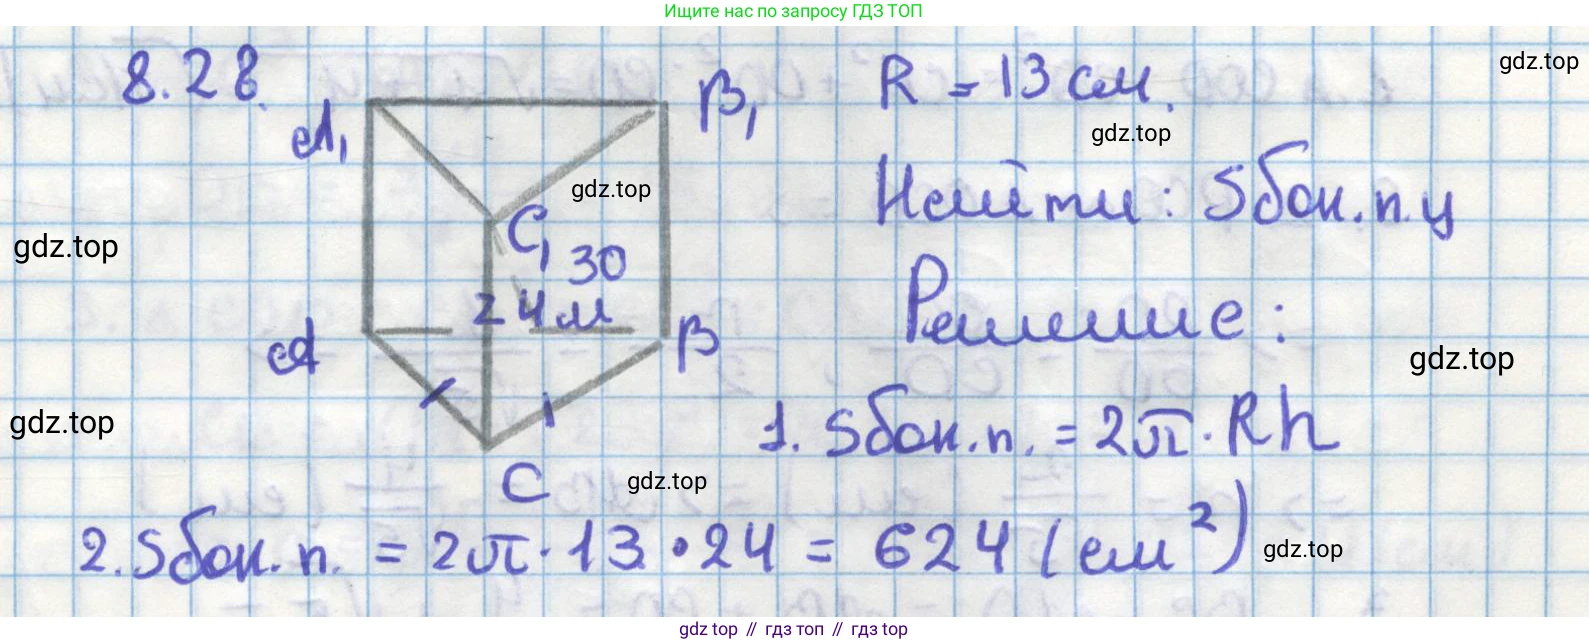 Ищите нас по запросу ГДЗ ТОП
8.28.
A₁
B₁
C₁
30
24 м
A
B
C
R = 13 см.
Найти: Sбок.п.ц
Решение:
1. Sбок.п. = 2π · Rh
2. Sбок.п. = 2π · 13 · 24 = 624 (см²)
gdz.top
gdz.top
gdz.top
gdz.top
gdz.top
gdz.top
gdz.top
gdz.top
gdz top // гдз топ // гдз top